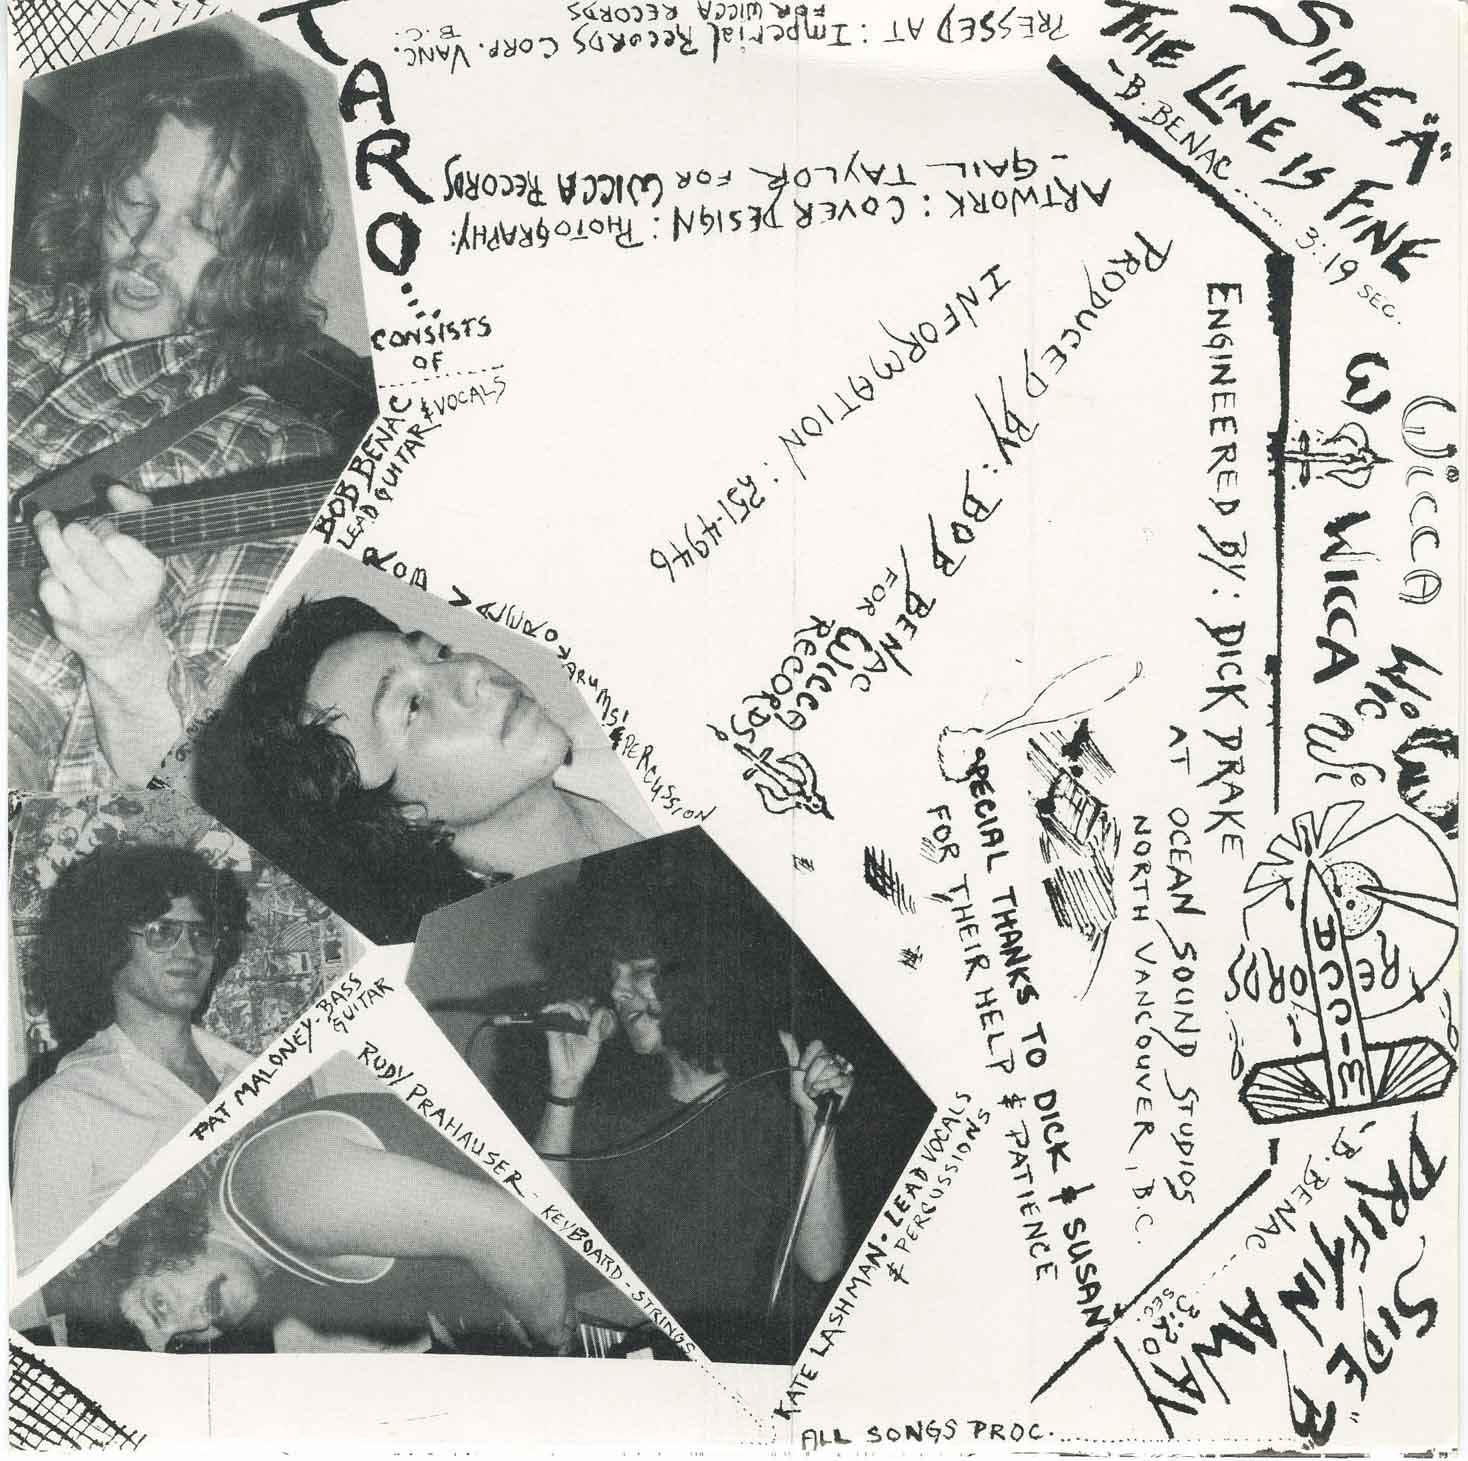 TARO...
CONSISTS
OF
BOB BENAC
LEAD GUITAR & VOCALS
DRUMS & PERCUSSION
PAT MALONEY-BASS
GUITAR
RUDY PRAHAUSER - KEYBOARD - STRINGS
KATE LASHMAN - LEAD VOCALS
& PERCUSSIONS
ALL SONGS PROC.
PRESSED AT : Imperial RECORDS CORP. VANC.
B.C.
FOR WICCA RECORDS
ARTWORK : COVER DESIGN : PHOTOGRAPHY:
- GAIL TAYLOR FOR WICCA RECORDS
PRODUCED BY : BOB BENAC
FOR WICCA
RECORDS
INFORMATION : 251-4946
ENGINEERED BY : DICK DRAKE
AT OCEAN SOUND STUDIOS
NORTH VANCOUVER, B.C.
SPECIAL THANKS TO DICK & SUSAN
FOR THEIR HELP & PATIENCE
SIDE "A"
THE LINE IS FINE
- B. BENAC ........ 3:19 SEC.
W
WICCA
WICCA
Wi
WIC
RECORDS
SIDE "B"
DRIFTIN AWAY
B. BENAC ........ 3:20
SEC.